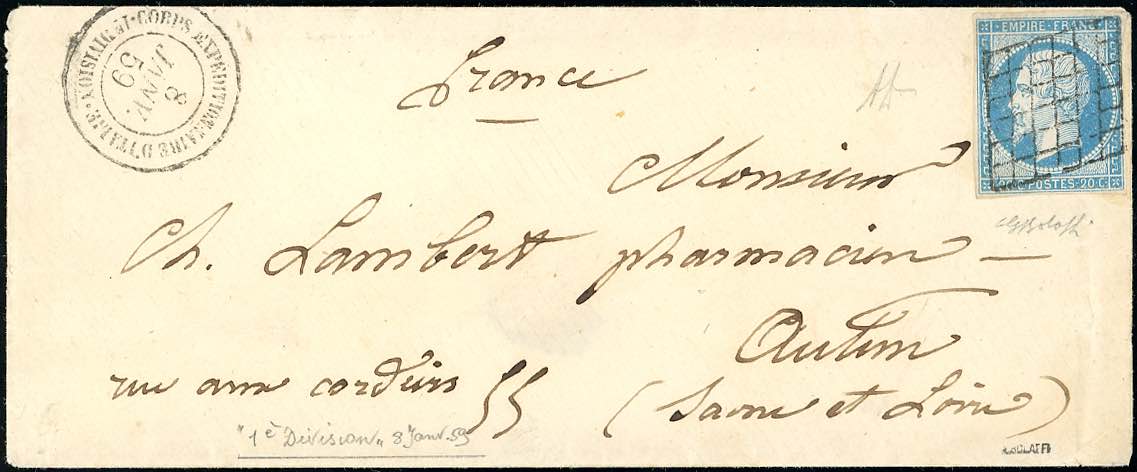 CORPS EXPEDITIONNAIRE D'ITALIE
8
JANV.
59
EMPIRE FRANC
POSTES 20 C.
France
Monsieur
Ch. Lambert pharmacien —
Autun
rue aux cordiers 55
(Saone et Loire)
"1e Division" 8 Janv. 59